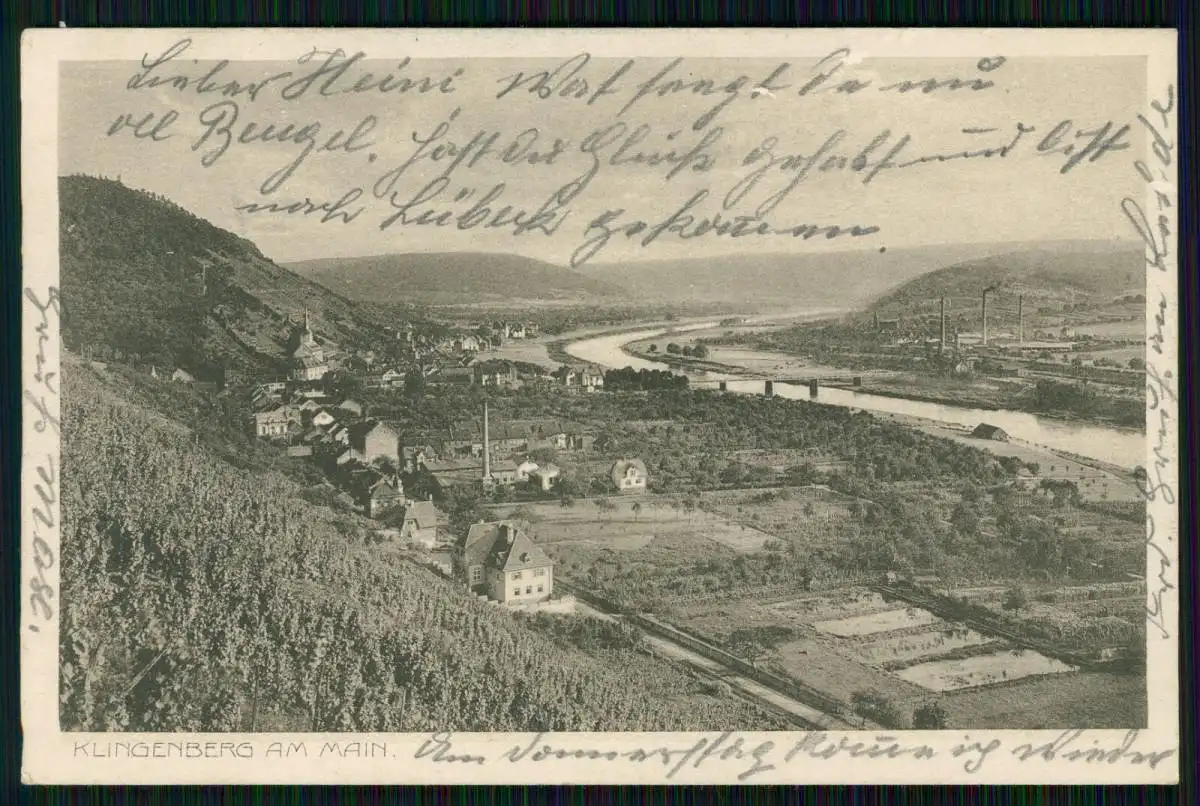 Lieber Heini Wat segst Du nu
oll Bengel. Hast Du Glück Gehabt und bist
nach Lübeck gekom̄en.
KLINGENBERG AM MAIN.
Am Donnerstag kom̄e ich wieder